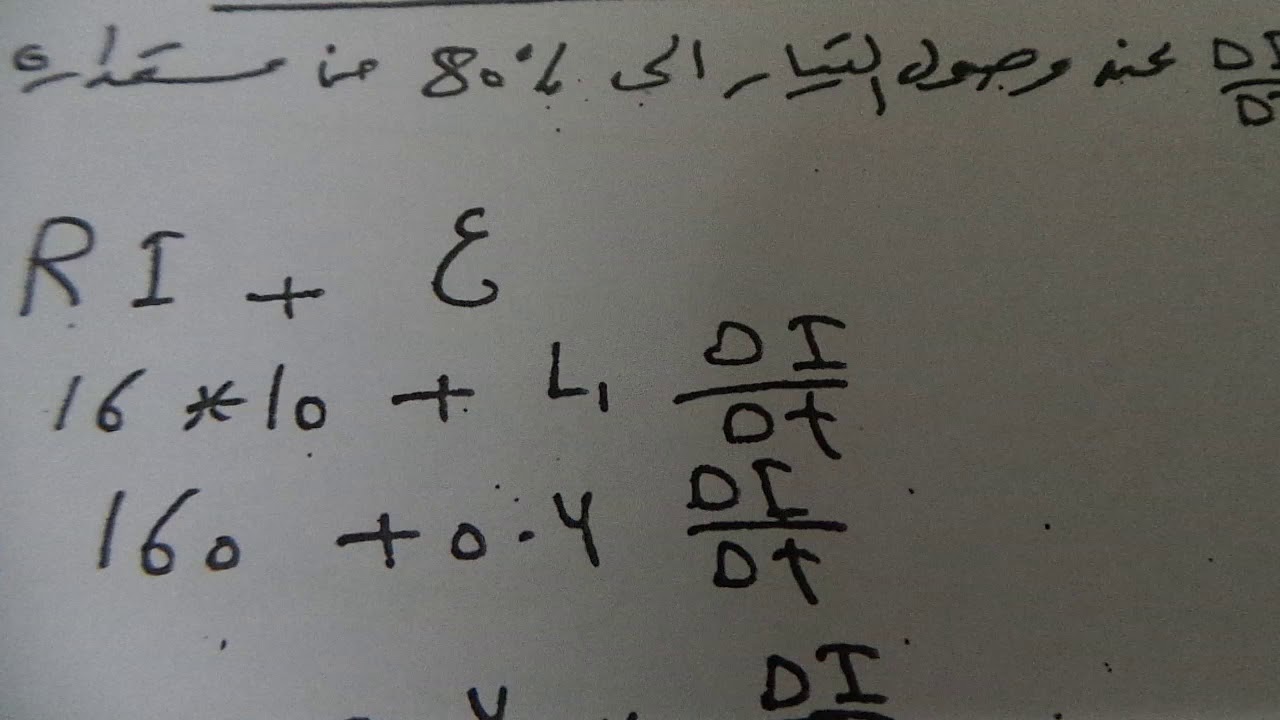 DI عند وصول التيار الى 80% من مقداره
D
RI + ε
16 * 10 + L1 DI
Dt
160 + 0.4 DI
Dt
DI